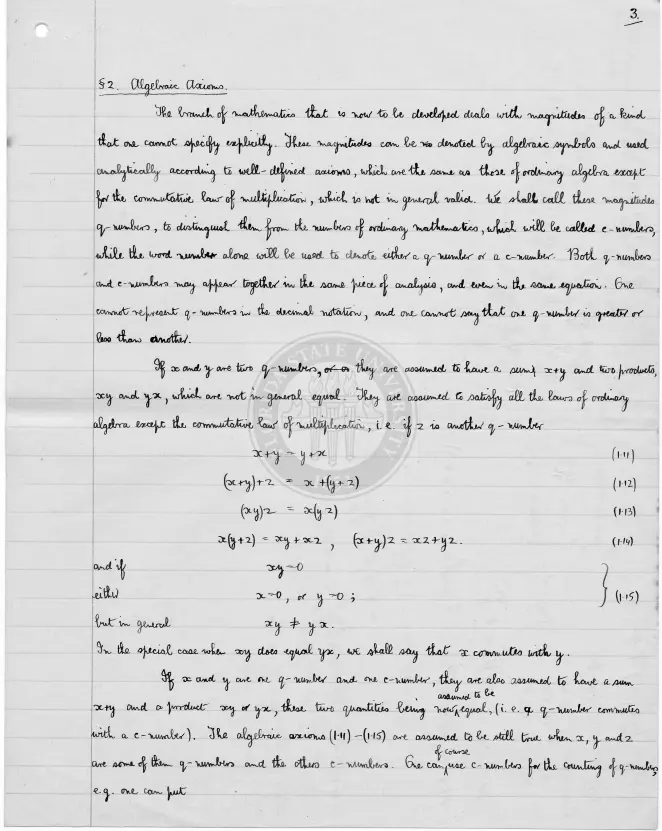 3.
§2. Algebraic Axioms.
The branch of mathematics that is now to be developed deals with magnitudes of a kind
that one cannot specify explicitly. These magnitudes can be denoted by algebraic symbols and used
analytically according to well-defined axioms, which are the same as those of ordinary algebra except
for the commutative law of multiplication, which is not in general valid. We shall call these magnitudes
q-numbers, to distinguish them from the numbers of ordinary mathematics, which will be called c-numbers,
while the word number alone will be used to denote either a q-number or a c-number. Both q-numbers
and c-numbers may appear together in the same piece of analysis, and even in the same equation. One
cannot represent q-numbers in the decimal notation, and one cannot say that one q-number is greater or
less than another.
If x and y are two q-numbers, they are assumed to have a sum x+y and two products,
xy and yx, which are not in general equal. They are assumed to satisfy all the laws of ordinary
algebra except the commutative law of multiplication, i.e. if z is another q-number
x+y = y+x (1·11)
(x+y)+z = x+(y+z) (1·12)
(xy)z = x(yz) (1·13)
x(y+z) = xy+xz , (x+y)z = xz+yz. (1·14)
and if xy=0
either x=0, or y=0 ; } (1·15)
but in general xy ≠ yx.
In the special case when xy does equal yx, we shall say that x commutes with y.
If x and y are one q-number and one c-number, they are also assumed to have a sum
x+y and a product xy or yx, these two quantities being now assumed to be equal, (i.e. a q-number commutes
with a c-number). The algebraic axioms (1·11)-(1·15) are assumed to be still true when x, y and z
are some of them q-numbers and the others c-numbers. One can of course use c-numbers for the counting of q-numbers,
e.g. one can put
STATE UNIVERSITY